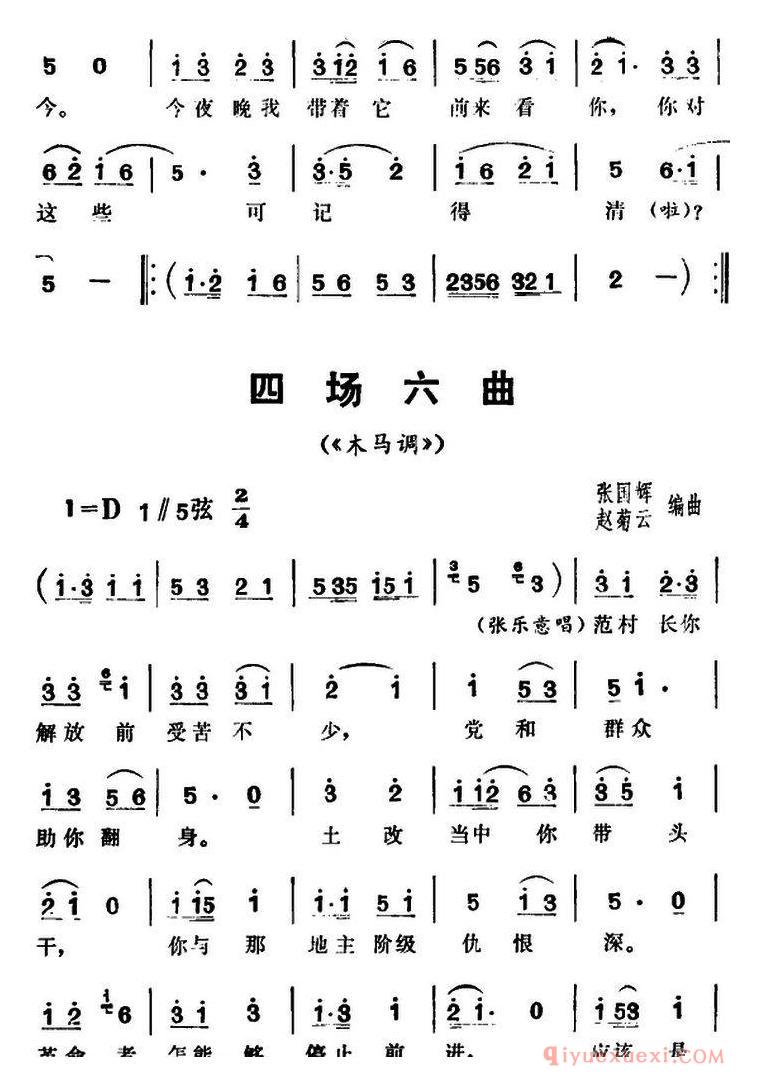 5 0 | 1 3 2 3 | 3 12 1 6 | 5 56 3 1 | 2 1· 3 3 |
今。 今夜晚我 带着它 前来看 你，你对
6 2 1 6 | 5 · 3 | 3·5 2 | 1 6 2 1 | 5 6·1 |
这些 可记 得 清(啦)?
5 — ‖: (1·2 1 6 | 5 6 5 3 | 2356 321 | 2 —) :‖
四场六曲
(《木马调》)
1=D 1∥5弦 2/4
张国辉
赵菊云 编曲
(1·3 1 1 | 5 3 2 1 | 535 151 | 3 5 6 3) | 3 1 2·3 |
(张乐意唱)范村 长你
3 3 6 1 | 3 3 3 1 | 2 1 | 1 5 3 | 5 1 · |
解放前 受苦不 少， 党和 群众
1 3 5 6 | 5 · 0 | 3 2 | 1 12 6 3 | 3 5 1 |
助你翻 身。 土改 当中你 带头
2 1 0 | 1 15 1 | 1·1 5 1 | 5 1 3 | 5 · 0 |
干， 你与那 地主阶级 仇恨 深。
1 2 1 6 | 3 1 3 | 1·3 1 | 2 1· 0 | 1 53 1 |
革命者 怎能够 停止前 进。 应该是
qiyuexuexi.com